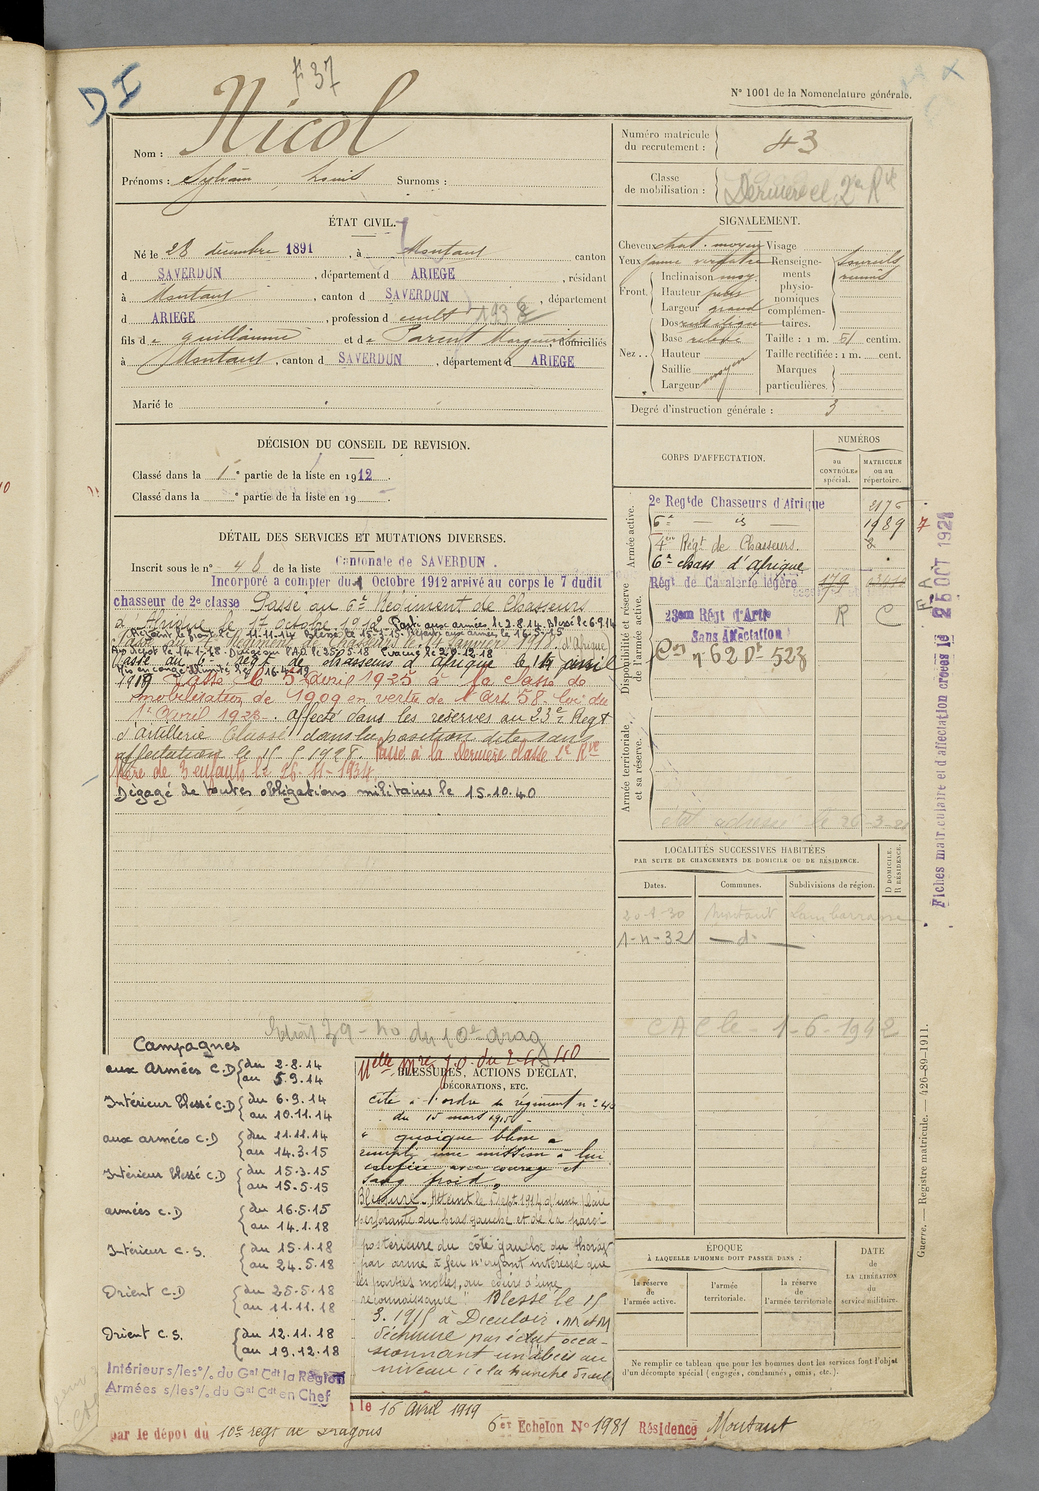 DI
F 37
Nº 1001 de la Nomenclature générale.
Nom : Nicol
Prénoms : Sylvain, Louis Surnoms :
Numéro matricule du recrutement : 43
Classe de mobilisation : Dernière cl. 2e Rve
ÉTAT CIVIL.
Né le 28 décembre 1891, à Montaut canton
d SAVERDUN, département d ARIEGE, résidant
à Montaut, canton d SAVERDUN, département
d ARIEGE, profession d cult 1932
fils de guillaume et de Parent Marguerite, domiciliés
à Montaut, canton d SAVERDUN, département d ARIEGE
Marié le
SIGNALEMENT.
Cheveux chat. moyen Visage
Yeux jaune verdatre Renseignements physionomiques complémentaires. Sourcils réunis
Front. Inclinaison moy.
Hauteur
Largeur grand
Nez .. Dos rectiligne
Base relevée
Hauteur
Saillie
Largeur moyen
Taille : 1 m. 51 centim.
Taille rectifiée : 1 m. cent.
Marques particulières.
Degré d'instruction générale : 3
DÉCISION DU CONSEIL DE REVISION.
Classé dans la 1e partie de la liste en 1912.
Classé dans la e partie de la liste en 19 .
DÉTAIL DES SERVICES ET MUTATIONS DIVERSES.
Inscrit sous le nº 48 de la liste Cantonale de SAVERDUN.
Incorporé a compter du 1 Octobre 1912 arrivé au corps le 7 dudit
chasseur de 2e classe Passé au 6e Régiment de Chasseurs
d'Afrique le 1er octobre 1912 Parti aux armées le 2.8.14. Blessé le 6.9.14
11.11.14 Blessé le 15.3.15. Reparti aux armées le 16.5.15
Régiment de Chasseurs le 14 Janvier 1918. d'Afrique
Au dépôt le 14.1.18. Division l'AO le 25.05.18 Evacué le 20.12.18
Passé au 6e Régt de chasseurs d'afrique le 14 avril
Mis en congé 16.4.19
1919 Passé le 5 avril 1925 à la classe de
mobilisation de 1909 en vertu de l'art 58. loi du
1er Avril 1923. affecté dans les réserves au 23e Régt
d'artillerie Classé dans la position dite sans
affectation le 15 1928. Passé à la Dernière classe 1e Rve
Père de 3 enfants le 26-11-1934
Dégagé de toutes obligations militaires le 15.10.40
CORPS D'AFFECTATION.
NUMÉROS
au CONTRÔLE spécial.
MATRICULE ou au répertoire.
Armée active.
2e Regt de Chasseurs d'Afrique 2176
6e — id — 1989
4e Régt de Chasseurs.
6e chass d'Afrique
Disponibilité et réserve de l'armée active.
Régt. de Cavalerie légère 179
23em Régt d'Artie R C
Sans Affectation
Con nº 62 Dt 523
Armée territoriale et sa réserve.
état adressé le 26-3-
Fiches matriculaire et d'affectation créées le 25 OCT 1921
LOCALITÉS SUCCESSIVES HABITÉES
PAR SUITE DE CHANGEMENTS DE DOMICILE OU DE RÉSIDENCE.
Dates. Communes. Subdivisions de région. D DOMICILE. R RÉSIDENCE.
20-1-30 Montaut
1-11-32 — d —
CACle - 1-6-1942
39-40 du 10e drag
Campagnes
aux Armées C.D du 2.8.14
au 5.9.14
Intérieur blessé C.D du 6.9.14
au 10.11.14
aux armées C.D du 11.11.14
au 14.3.15
Intérieur blessé C.D du 15.3.15
au 15.5.15
armées C.D du 16.5.15
au 14.1.18
Intérieur C.S. du 15.1.18
au 24.5.18
Orient C.D du 25.5.18
au 11.11.18
Orient C.S. du 12.11.18
au 19.12.18
Intérieur s/les % du Gal Cdt la Région
Armées s/les % du Gal Cdt en Chef
BLESSURES, ACTIONS D'ÉCLAT,
DÉCORATIONS, ETC.
Cité à l'ordre du régiment nº 40
du 15 mars 1915
" quoique blessé a
rempli une mission à lui
confiée avec courage et
sang froid "
Blessure. Atteint le 5 sept 1914 d'une plaie
perforante du bras gauche et de la paroi
postérieure du côté gauche du thorax
par arme à feu n'ayant intéressé que
les parties molles, au cours d'une
reconnaissance " Blessé le 15
3. 1915 à Dieulouard. M et M
déchirure par éclat occa-
sionnant un abcès au
niveau de la hanche droite
ÉPOQUE
À LAQUELLE L'HOMME DOIT PASSER DANS :
la réserve de l'armée active.
l'armée territoriale.
la réserve de l'armée territoriale
DATE de LA LIBÉRATION du service militaire.
Ne remplir ce tableau que pour les hommes dont les services font l'objet
d'un décompte spécial (engagés, condamnés, omis, etc.).
Guerre. — Registre matricule. — 426-89-1911.
le 16 Avril 1919 6er Echelon Nº 1981 Résidence Montaut
par le dépot du 10e regt de Dragons